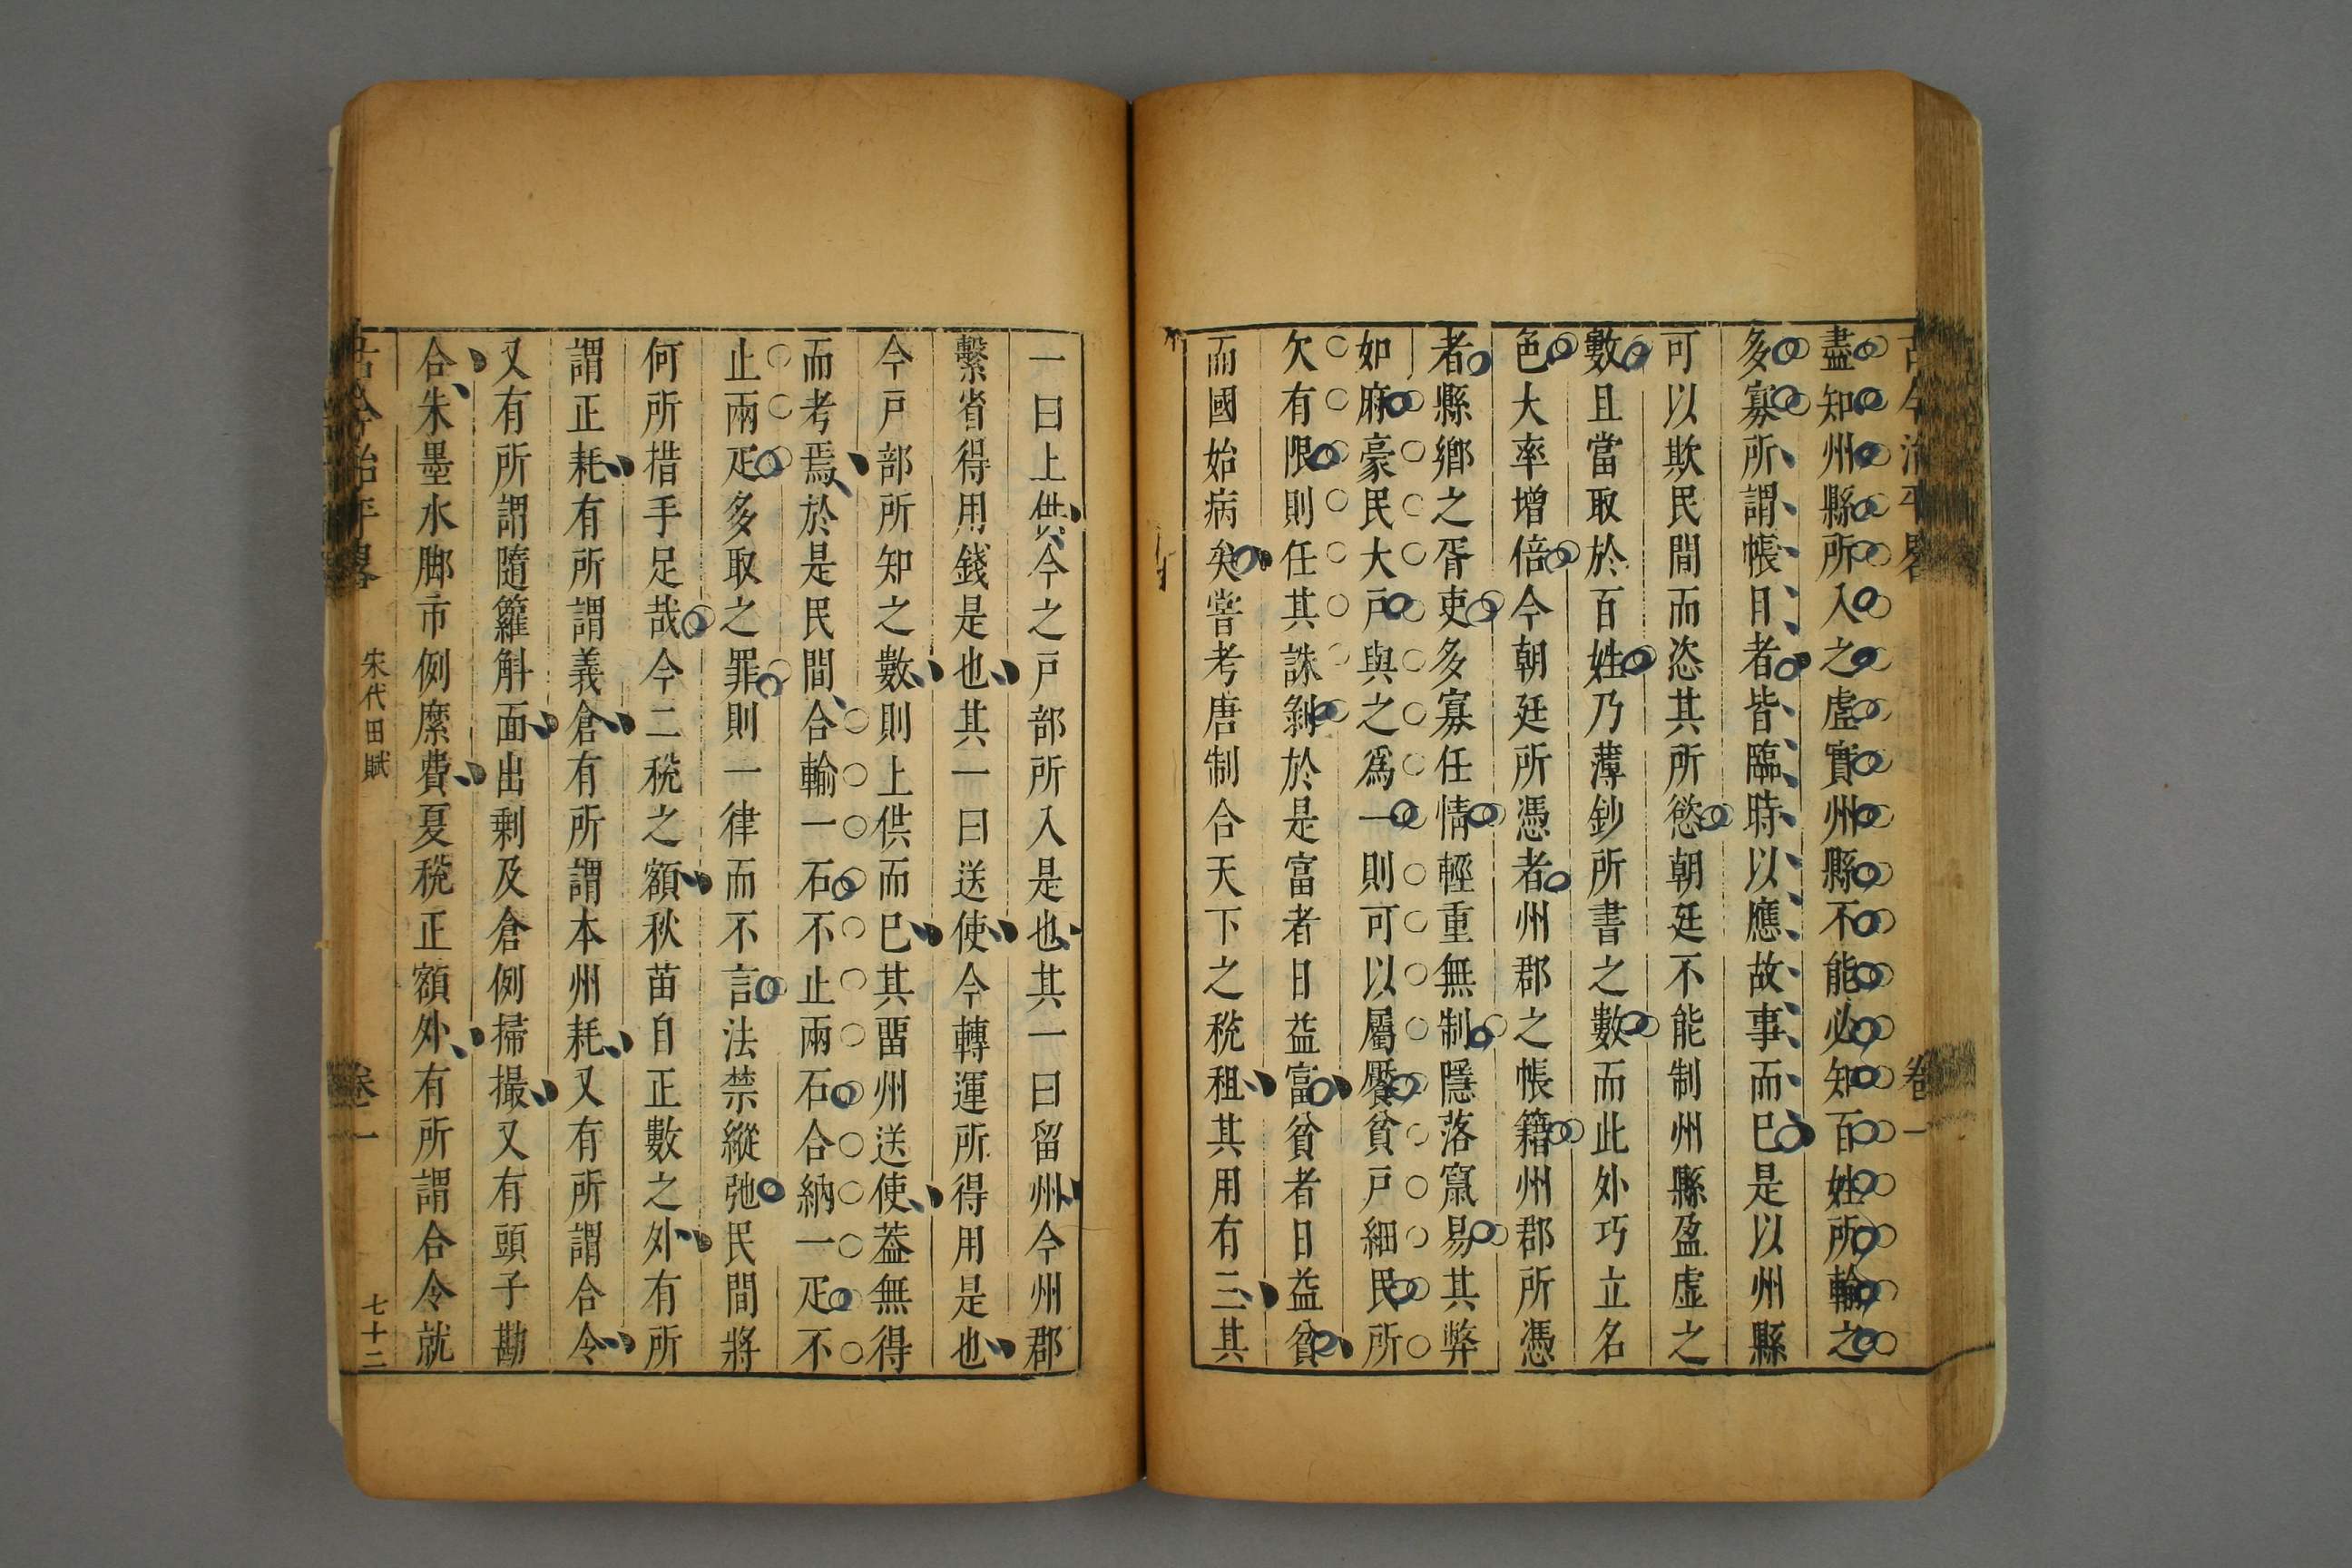 古今治平畧
卷一
盡知州縣所入之虛實州縣不能必知百姓所輸之
多寡所謂帳目者皆臨時以應故事而巳是以州縣
可以欺民間而恣其所慾朝廷不能制州縣盈虛之
數且當取於百姓乃薄鈔所書之數而此外巧立名
色大率增倍今朝廷所憑者州郡之帳籍州郡所憑
者縣鄉之胥吏多寡任情輕重無制隱落竄易其弊
如府豪民大戶與之爲一則可以屬饜貧戶細民所
欠有限則任其誅剝於是富者日益富貧者日益貧
而國始病矣嘗考唐制合天下之稅租其用有三其
一曰上供今之戸部所入是也其一曰留州今州郡
繫省得用錢是也其一曰送使今轉運所得用是也
今戸部所知之數則上供而巳其畱州送使葢無得
而考焉於是民間合輸一石不止兩石合納一疋不
止兩疋多取之罪則一律而不言法禁縱弛民間將
何所措手足哉今二稅之額秋苗自正數之外有所
謂正耗有所謂義倉有所謂本州耗又有所謂合令
又有所謂隨籮斛面出剩及倉例掃撮又有頭子勘
合朱墨水脚市例縻費夏稅正額外有所謂合令就
古今治平畧
宋代田賦
卷一
七十二